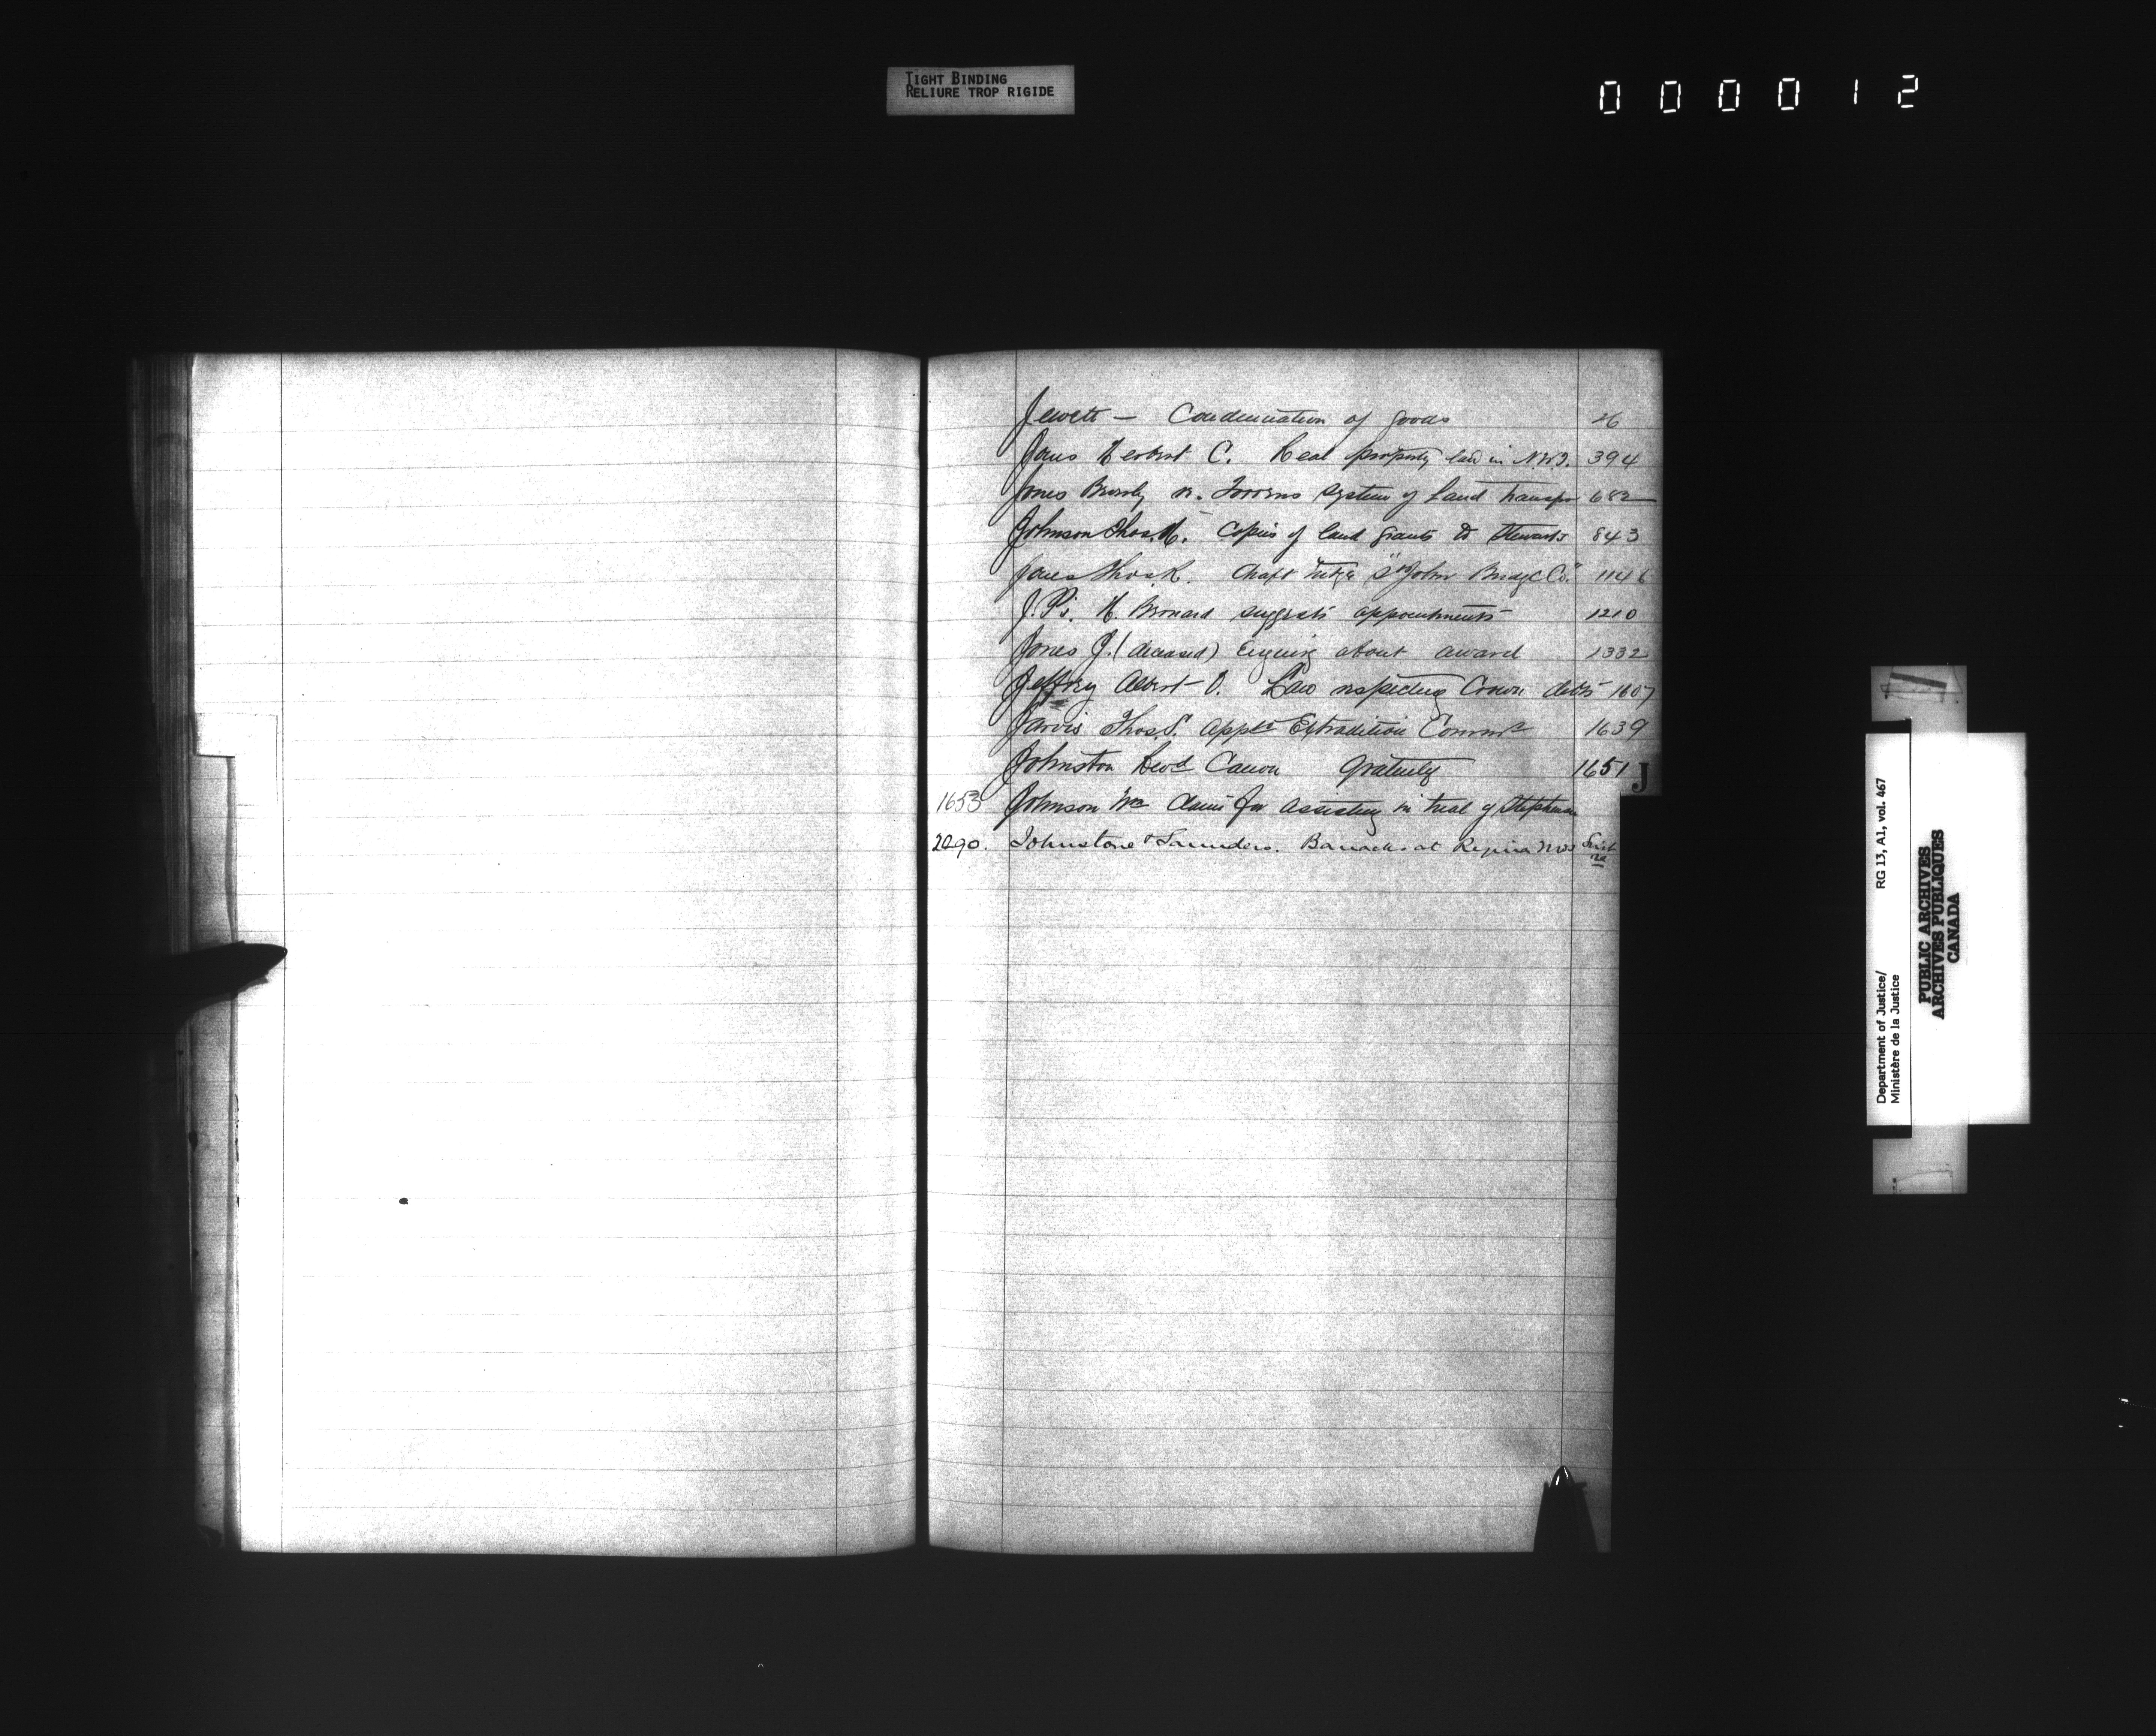 TIGHT BINDING
RELIURE TROP RIGIDE
000012
Jewett — Condemnation of goods 26
Jones Herbert C. Real property law in N.W.T. 394
Jones Beverly re. Torrens system of Land transfer 682
Johnson Thos. H. Copies of land grants to Stewarts 843
Jones Thos. R. "St John Bridge Co." 1146
J.P's. H. Bernard suggests appointments 1210
Jones J. (deceased) Enquiry about award 1332
Jeffrey Albert O. Law respecting Crown debts 1607
Jarvis Thos S. Appt Extradition Commr 1639
Johnston Revd Canon Gratuity 1651
J
1653 Johnson Wm Claim for assisting in trial of Stephenson
2290. Johnstone & Saunders. Barracks at Regina
Department of Justice/ RG 13, A1, vol. 467
Ministère de la Justice
PUBLIC ARCHIVES
ARCHIVES PUBLIQUES
CANADA